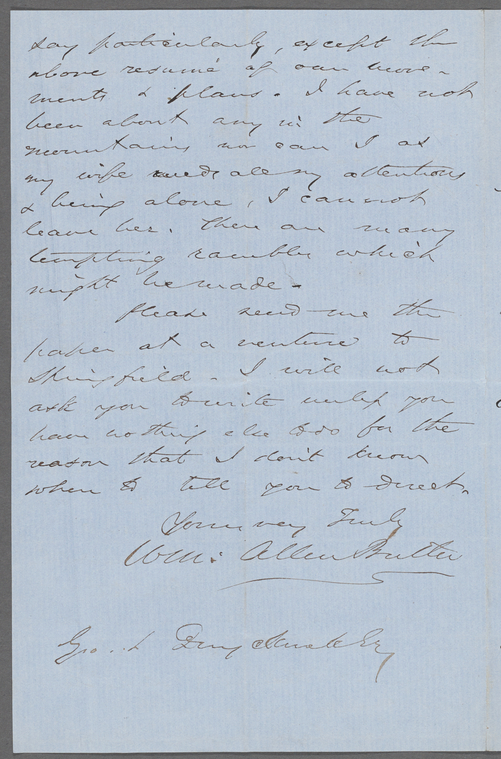 say particularly, except the
above resumé of our move-
ments & plans. I have not
been about any in the
mountains nor can I as
my wife needs all my attentions
& being alone, I cannot
leave her. There are many
tempting rambles which
might be made.
Please send me the
paper at a venture to
Springfield. I will not
ask you to write unless you
have nothing else to do for the
reason that I don't know
where to tell you to direct.
Yours very Truly
Wm: Allen Butler
Geo. L Duyckinck Esq